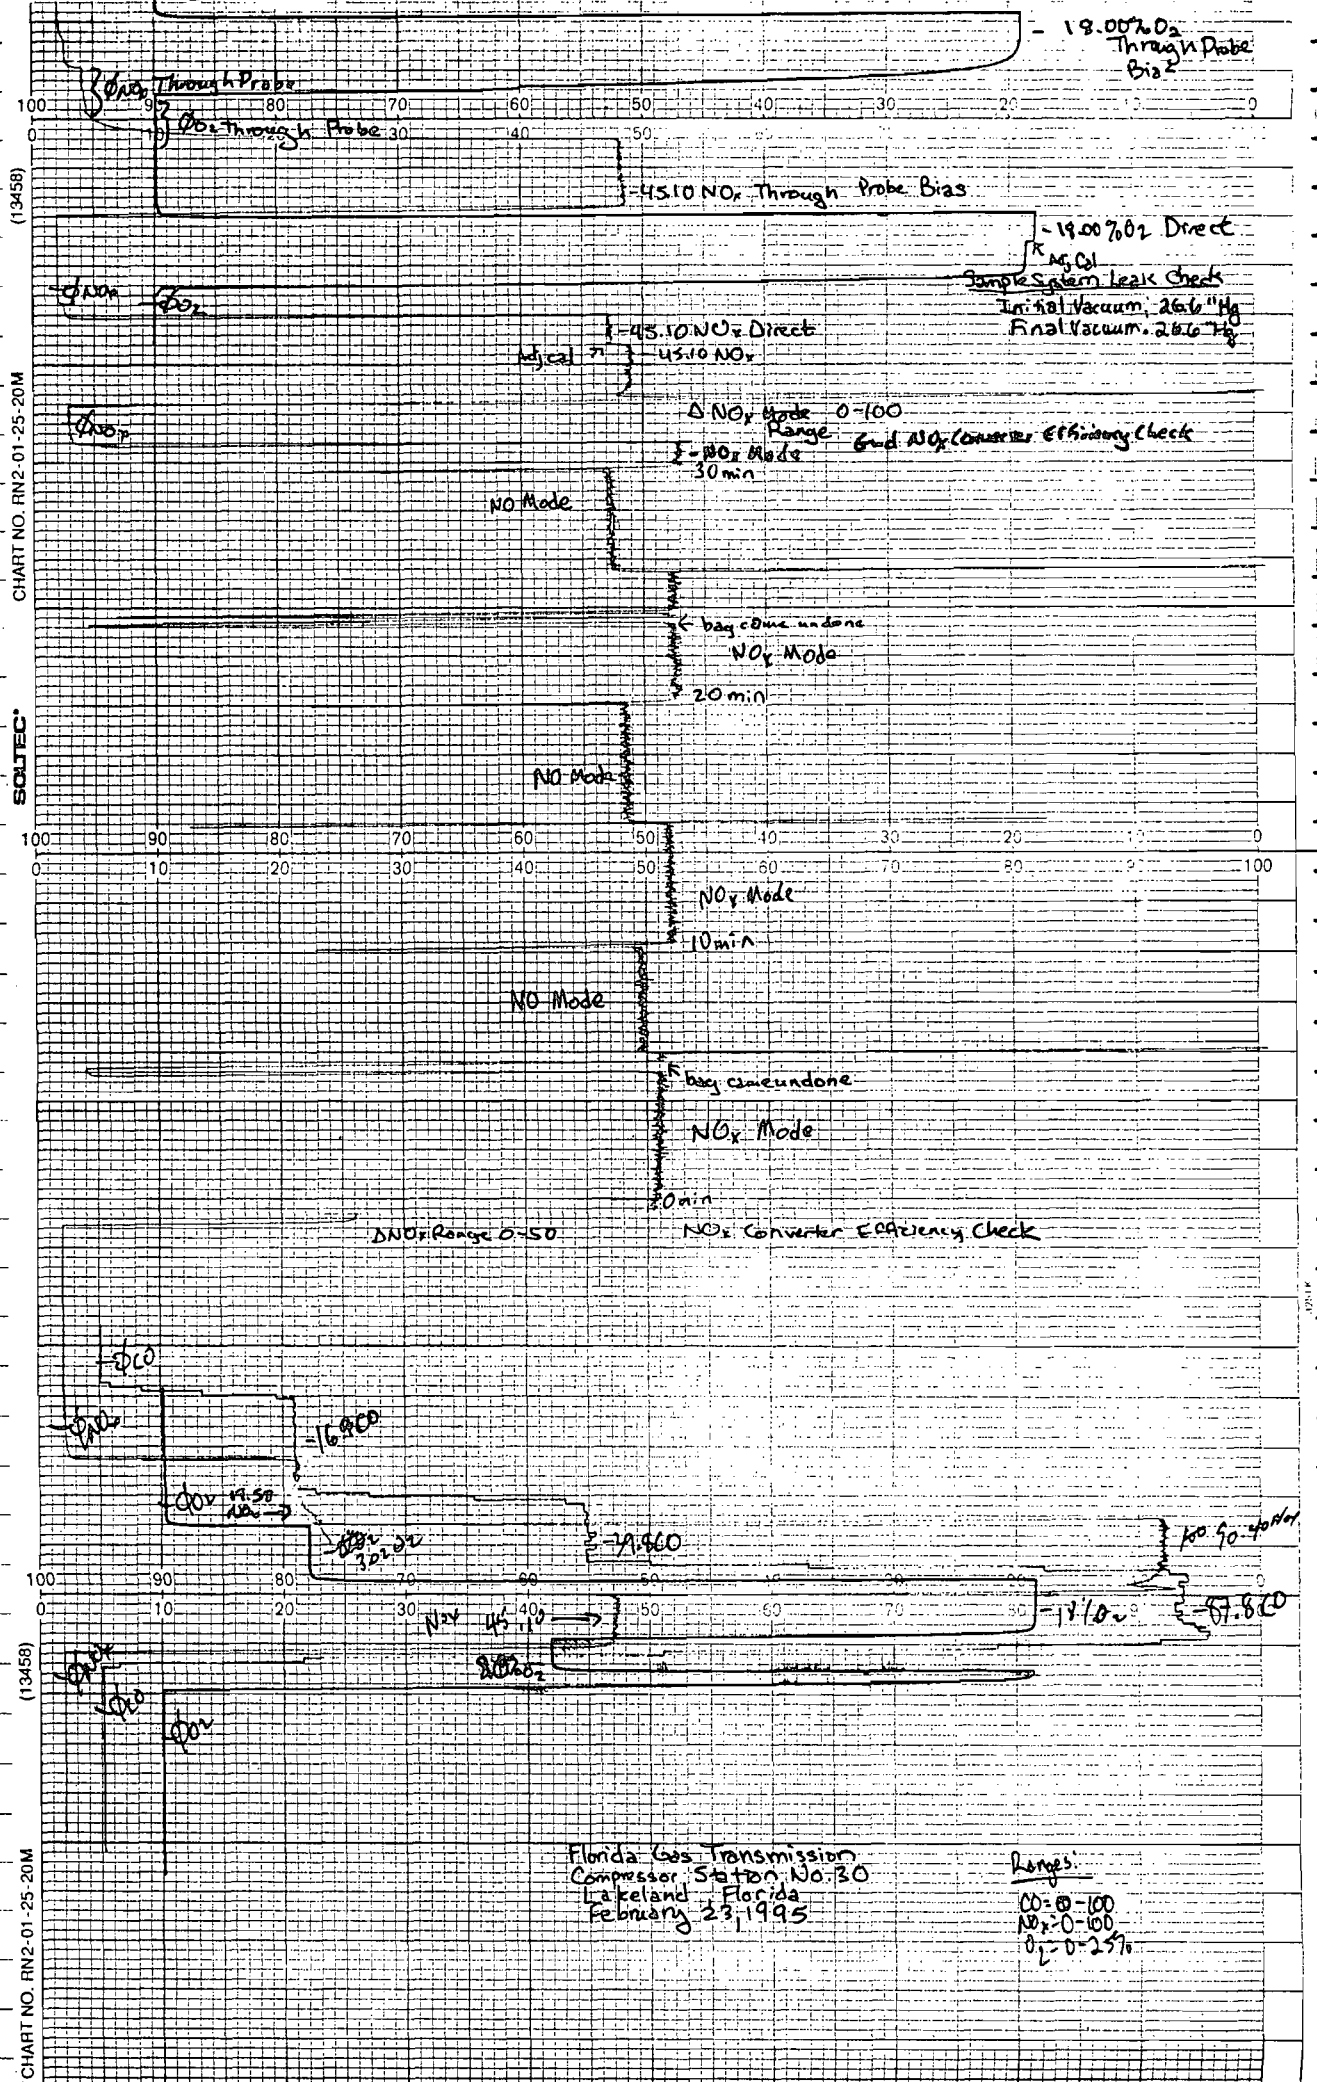 - 18.00% O₂
Through Probe
Bias
ϕNOx Through Probe
100 90 80 70 60 50 40 30 20 10 0
0 10 20 30 40 50 60 70 80 90 100
ϕO₂ Through Probe
(13458)
-45.10 NOx Through Probe Bias
-18.00% O₂ Direct
Adj Cal
Sample System Leak Check
Initial Vacuum, 26.6 "Hg
Final Vacuum. 26.6 "Hg
ϕNOx
ϕO₂
-45.10 NOx Direct
Adj cal
45.10 NOx
CHART NO. RN2-01-25-20M
ϕNOx
Δ NOx Mode 0-100
Range
End NOx Converter Efficiency Check
-NOx Mode
30 min
NO Mode
← bag came undone
NOx Mode
20 min
SOLTEC
NO Mode
100 90 80 70 60 50 40 30 20 10 0
0 10 20 30 40 50 60 70 80 90 100
NOx Mode
10 min
NO Mode
bag came undone
NOx Mode
0 min
ΔNOx Range 0-50
NOx Converter Efficiency Check
-ϕCO
ϕNOx
ϕO₂
NOx 45.10 →
-18% O₂
-87.8 CO
100 90 80 70 60 50 40 30 20 10 0
0 10 20 30 40 50 60 70 80 90 100
(13458)
ϕNOx
ϕCO
ϕO₂
Florida Gas Transmission
Compressor Station No. 30
Lakeland, Florida
February 23, 1995
Ranges:
CO = 0-100
NOx = 0-100
O₂ = 0-25%
CHART NO. RN2-01-25-20M